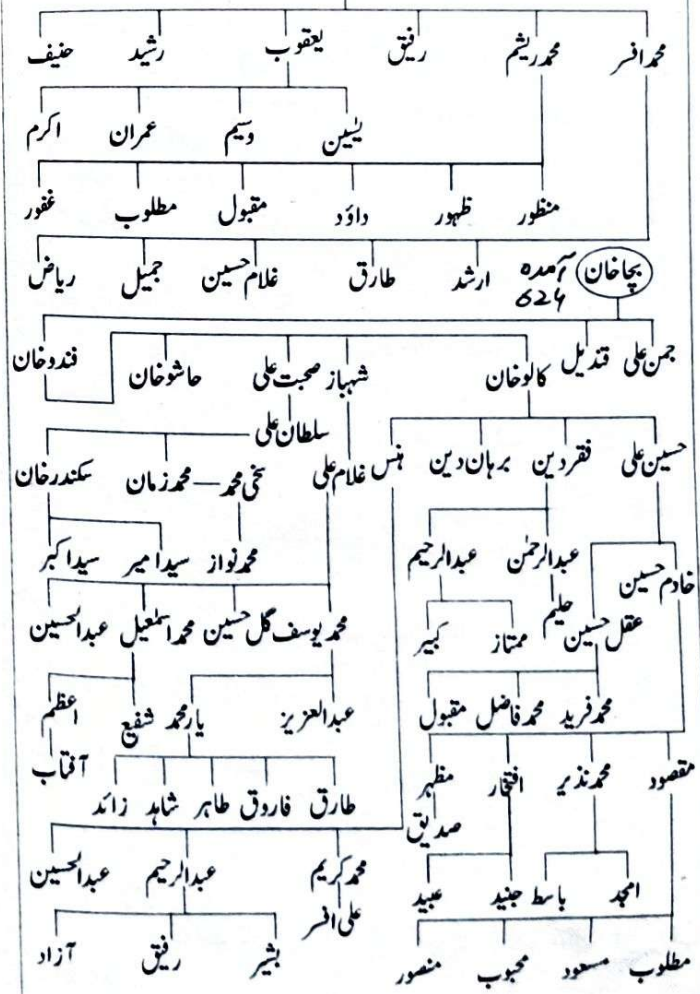 محمد افسر محمد ریشم رفیق یعقوب رشید حنیف
یٰسین وسیم عمران اکرم
منظور ظہور داؤد مقبول مطلوب غفور
بچا خان آمدہ ارشد طارق غلام حسین جمیل ریاض
624
جمن علی قندیل فندو خان
کالو خان شہباز صحبت علی حاشو خان
سلطان علی
حسین علی فقر دین برہان دین ہنس غلام علی سخی محمد محمد زمان سکندر خان
خادم حسین عبدالرحمٰن عبدالرحیم محمد نواز سید امیر سید اکبر
عقل حسین حلیم ممتاز کبیر محمد یوسف گل حسین محمد اسمٰعیل عبدالحسین
محمد فرید محمد فاضل مقبول عبدالعزیز یار محمد شفیع اعظم
آفتاب
مقصود محمد نذیر افتخار مظہر طارق فاروق طاہر شاہد زائد
صدیق
امجد باسط جنید عبید محمد کریم عبدالرحیم عبدالحسین
علی افسر
مطلوب مسعود محبوب منصور بشیر رفیق آزاد